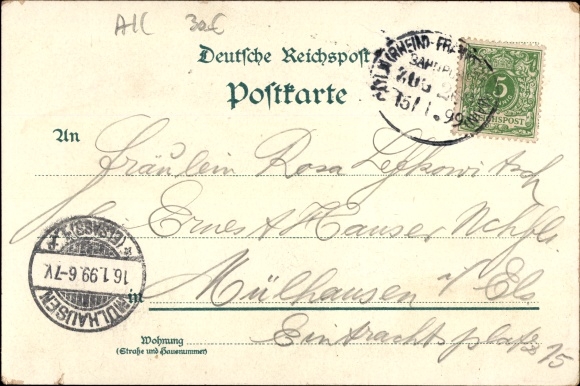 AK
Deutsche Reichspost
Postkarte
BAHNPOST
ZUG
15/1.99
5
REICHSPOST
An
Fräulein Rosa Lefkowitsch
Ernest Hauser Nchfl
(ELSASS)
16.1.99.6-7V.
MÜLHAUSEN
in Mülhausen i/ Els
Eintrachtsplatz
15
Wohnung
(Straße und Hausnummer)